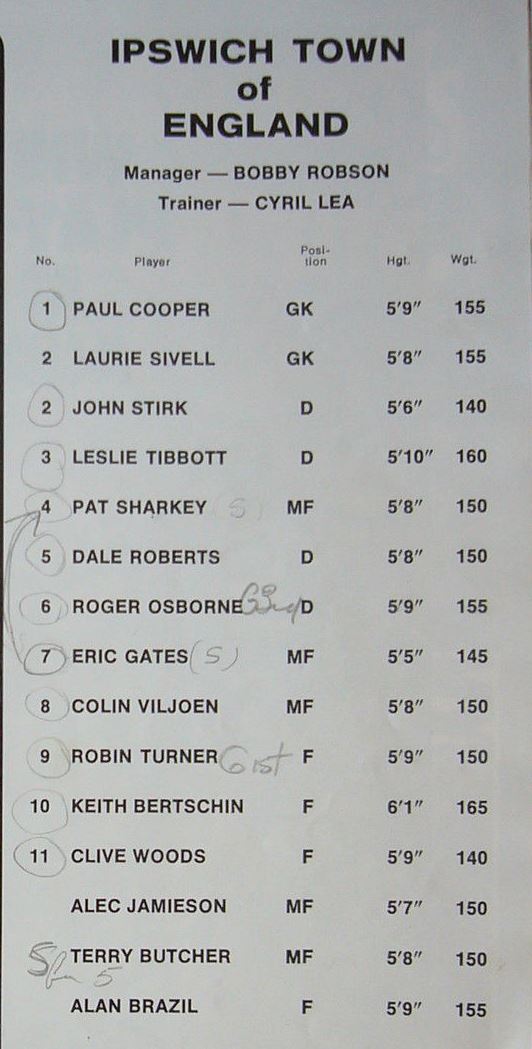 IPSWICH TOWN
of
ENGLAND
Manager — BOBBY ROBSON
Trainer — CYRIL LEA
No. Player Posi-tion Hgt. Wgt.
1 PAUL COOPER GK 5'9" 155
2 LAURIE SIVELL GK 5'8" 155
2 JOHN STIRK D 5'6" 140
3 LESLIE TIBBOTT D 5'10" 160
4 PAT SHARKEY (S) MF 5'8" 150
5 DALE ROBERTS D 5'8" 150
6 ROGER OSBORNE D 5'9" 155
7 ERIC GATES (S) MF 5'5" 145
8 COLIN VILJOEN MF 5'8" 150
9 ROBIN TURNER G 1st F 5'9" 150
10 KEITH BERTSCHIN F 6'1" 165
11 CLIVE WOODS F 5'9" 140
ALEC JAMIESON MF 5'7" 150
S TERRY BUTCHER MF 5'8" 150
for 5
ALAN BRAZIL F 5'9" 155